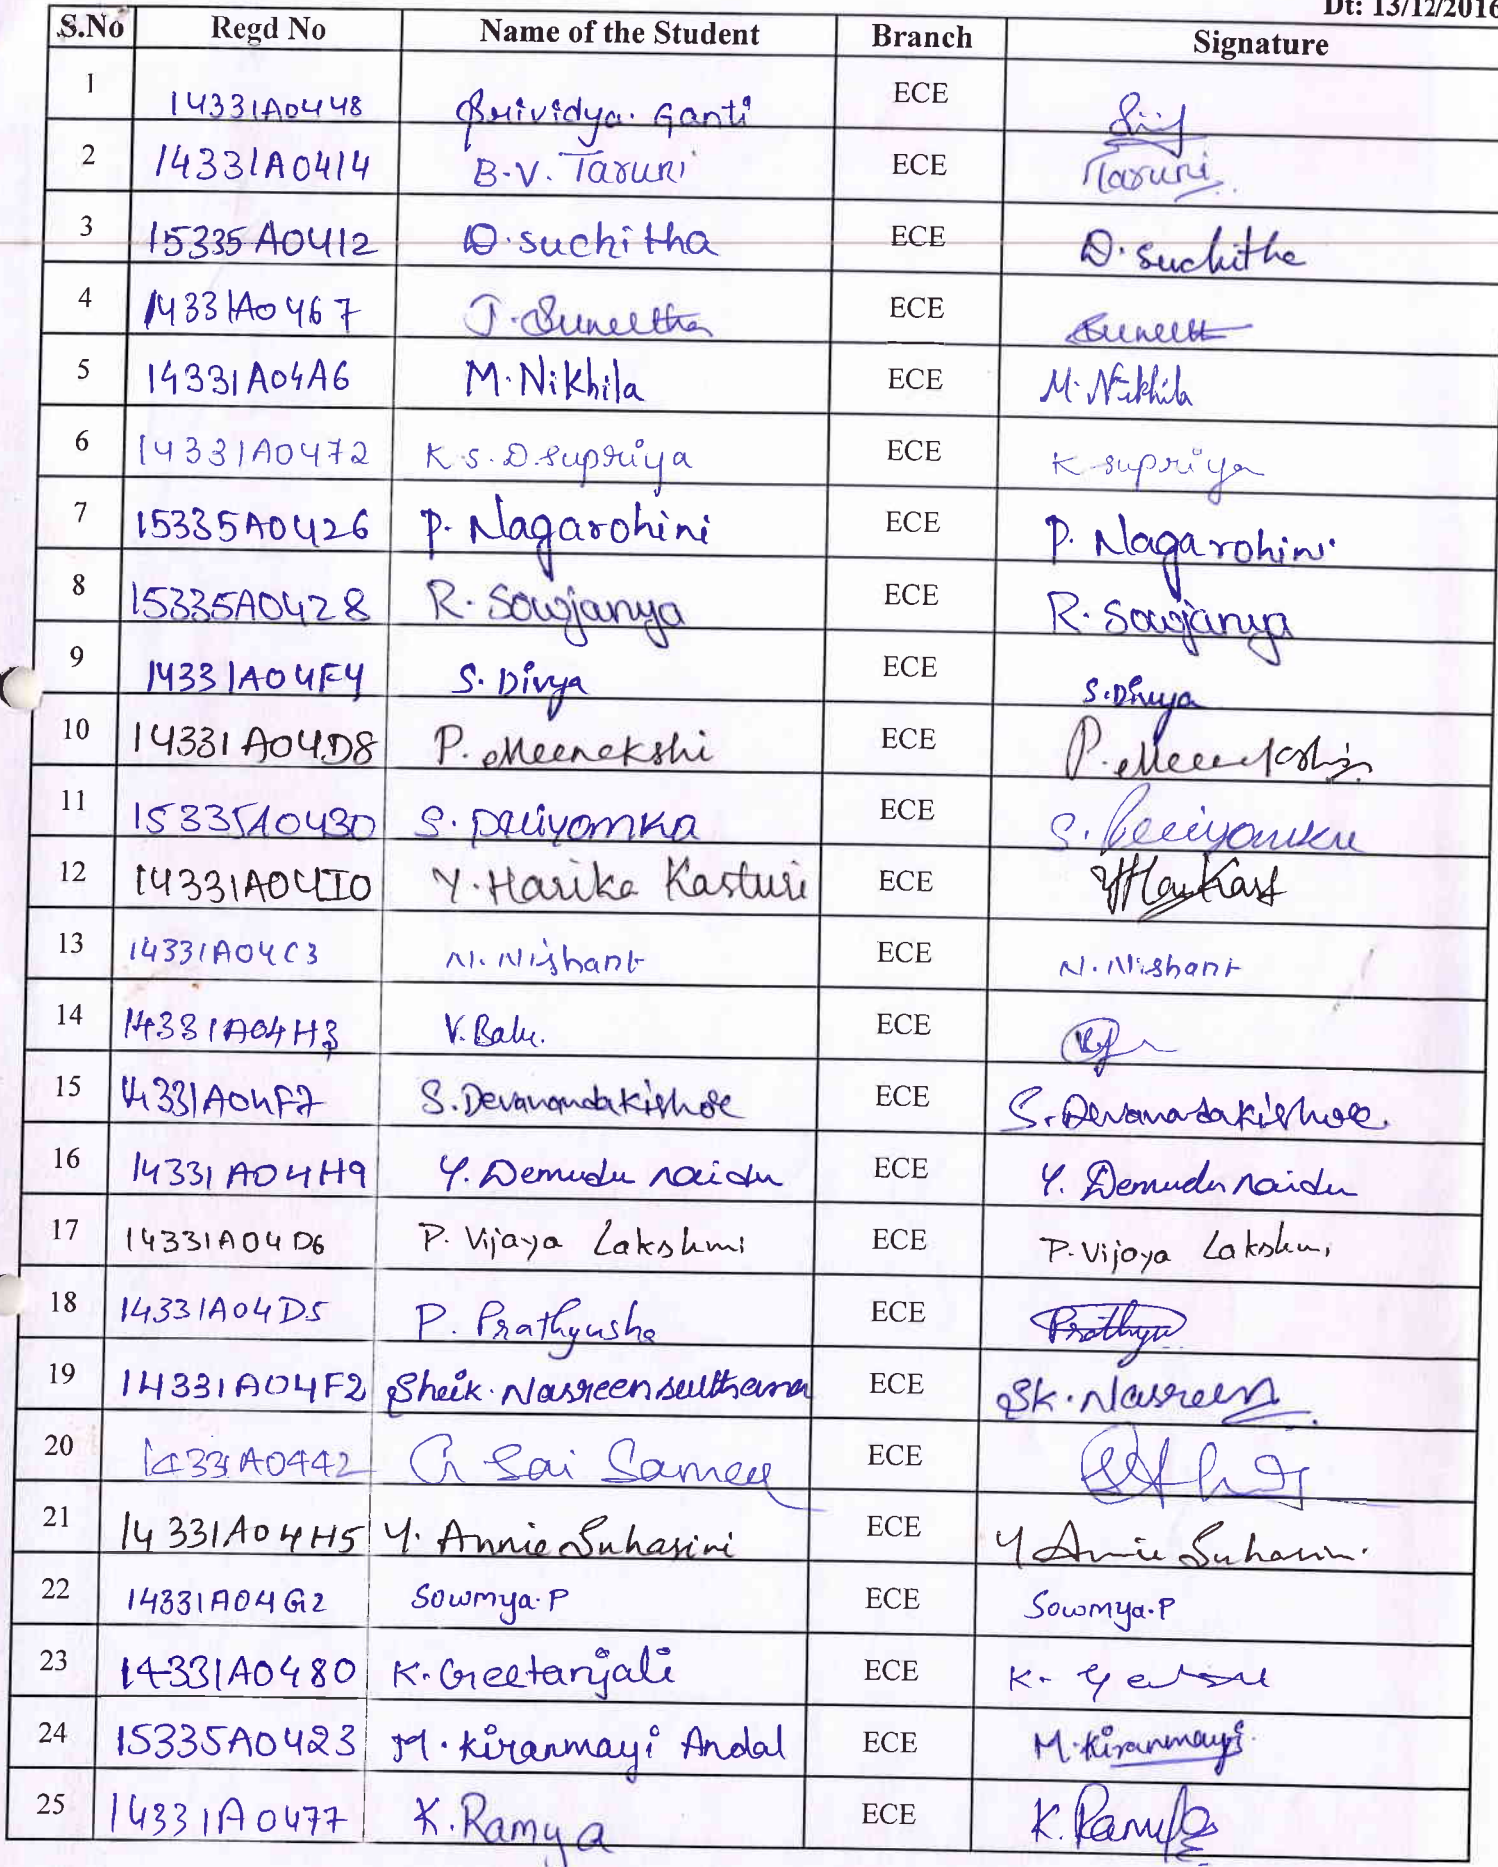 Dt: 13/12/2016
S.No Regd No Name of the Student Branch Signature
1 14331A0448 Srividya. Ganti ECE
2 14331A0414 B.V. Taruni ECE Taruni
3 15335A0412 D. suchitha ECE D. suchitha
4 14331A0467 J. Suneetha ECE Suneeth
5 14331A04A6 M. Nikhila ECE M. Nikhila
6 14331A0472 K.S.D. Supriya ECE K supriya
7 15335A0426 P. Nagarohini ECE P. Nagarohini
8 15335A0428 R. Sowjanya ECE R. Sowjanya
9 14331A04F4 S. Divya ECE S. Divya
10 14331A04D8 P. Meenakshi ECE P. Meenakshi
11 15335A0430 S. Priyamka ECE S. Priyamka
12 14331A04I0 Y. Harika Kasturi ECE
13 14331A04C3 N. Nishant ECE N. Nishant
14 14331A04H3 V. Balu. ECE
15 14331A04F7 S. Devanandakishore ECE S. Devanadakishore.
16 14331A04H9 Y. Demudu naidu ECE Y. Demudu naidu
17 14331A04D6 P. Vijaya Lakshmi ECE P. Vijaya Lakshmi
18 14331A04D5 P. Prathyusha ECE Prathyu
19 14331A04F2 Sheik. Nasreen sulthana ECE SK. Nasreen
20 14331A0442 G Sai Sameer ECE
21 14331A04H5 Y. Annie Suhasini ECE Y Annie Suhasini.
22 14331A04G2 Sowmya. P ECE Sowmya. P
23 14331A0480 K. Geetanjali ECE K.
24 15335A0423 M. Kiranmayi Andal ECE M. Kiranmayi
25 14331A0477 K. Ramya ECE K. Ramya